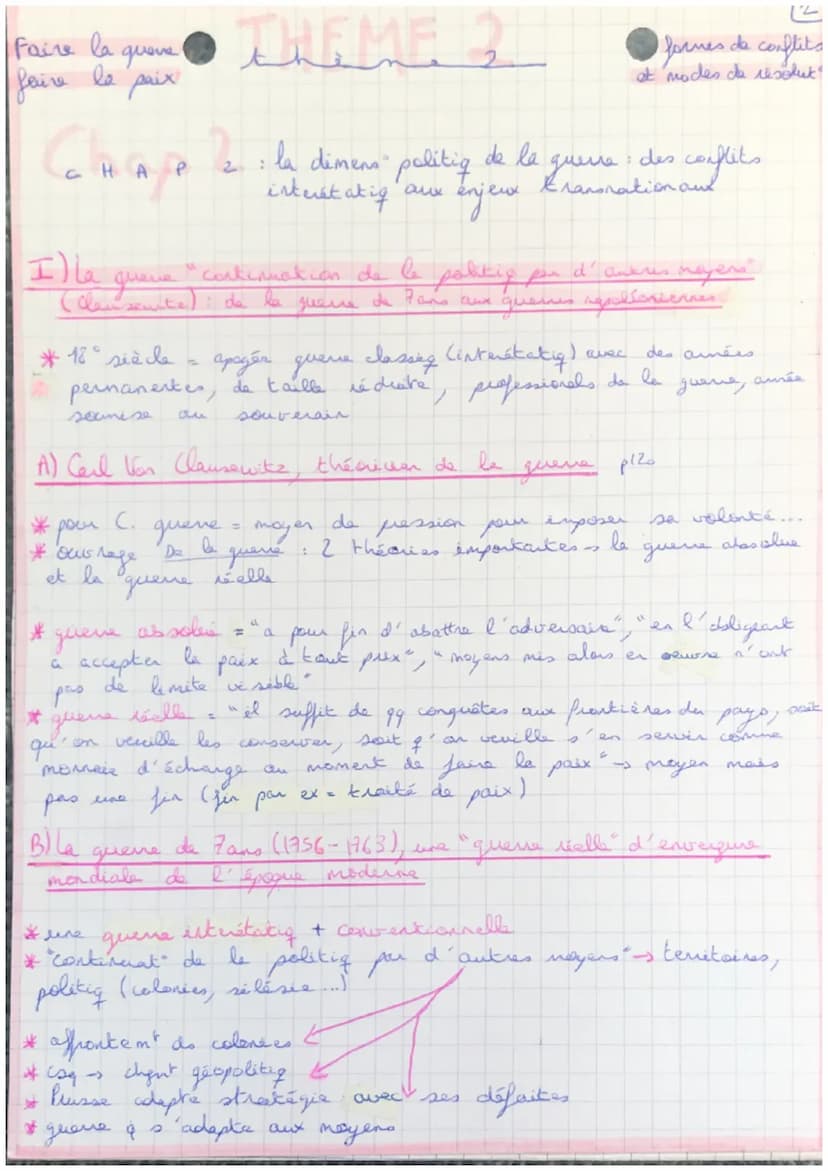 Faire la guerre
faire la paix
THEME 2
thème 2
formes de conflits
et modes de résolut°
Chap 2
CHAP 2 : la dimens° politiq de la guerre : des conflits
interétatiq aux enjeux transnationaux
I) La guerre "continuation de la politiq par d'autres moyens"
(Clausewitz) : de la guerre de 7ans aux guerres napoléoniennes
* 18° siècle = apogée guerre classiq (interétatiq) avec des armées
permanentes, de taille réduite, professionals de la guerre, armée
soumise au souverain
A) Carl Von Clausewitz, théoricien de la guerre p120
* pour C. guerre = moyen de pression pour imposer sa volonté...
* ouvrage De la guerre : 2 théories importantes → la guerre absolue
et la guerre réelle
* guerre absolue = "a pour fin d'abattre l'adversaire", "en l'obligeant
à accepter la paix à tout prix", "moyens mis alors en oeuvre n'ont
pas de limite visible"
* guerre réelle = "il suffit de qq conquêtes aux frontières du pays, soit
qu'on veuille les conserver, soit q'on veuille s'en servir comme
monnaie d'échange au moment de faire la paix" → moyen mais
pas une fin (fin par ex = traité de paix)
B) La guerre de 7ans (1756-1763), une "guerre réelle" d'envergure
mondiale de l'époque moderne
* une guerre interétatiq + conventionnelle
* "continuat° de la politiq par d'autres moyens" → territoires,
politiq (colonies, silésie...)
* affrontemt ds colonies
* csq → chgnt géopolitiq
* Prusse adapte stratégie avec ses défaites
* guerre q s'adapte aux moyens